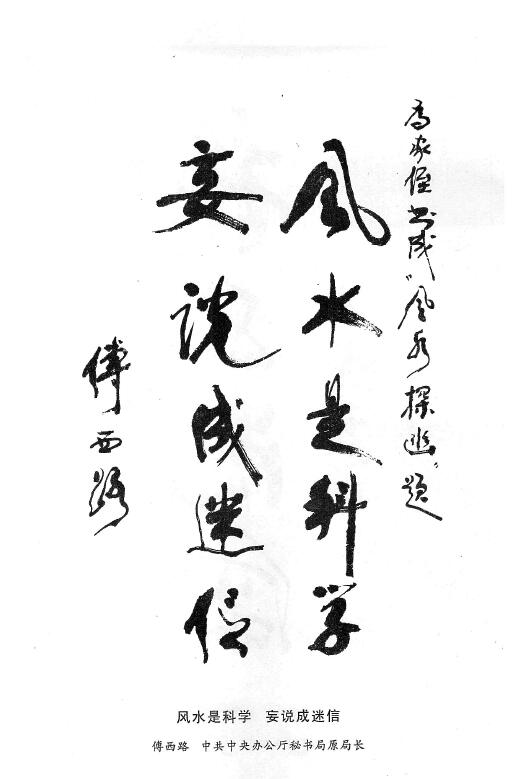 书成“风水探幽”题
风水是科学
妄说成迷信
傅西路
风水是科学　妄说成迷信
傅西路　中共中央办公厅秘书局原局长